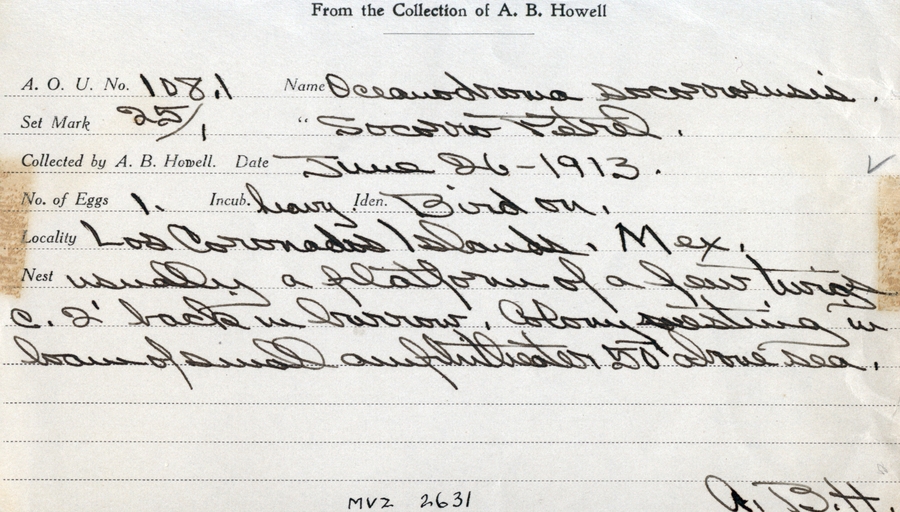 From the Collection of A. B. Howell
A. O. U. No. 108.1 Name Oceanodroma socorroensis.
Set Mark 25/1 " Socorro Petrel.
Collected by A. B. Howell. Date June 26-1913.
No. of Eggs 1. Incub. heavy. Iden. Bird on.
Locality Los Coronados Islands, Mex.
Nest usually a platform of a few twigs
c. 2' back in burrow. Colony nesting in
loam of small amphitheater 50' above sea.
A.B.H.
MVZ 2631